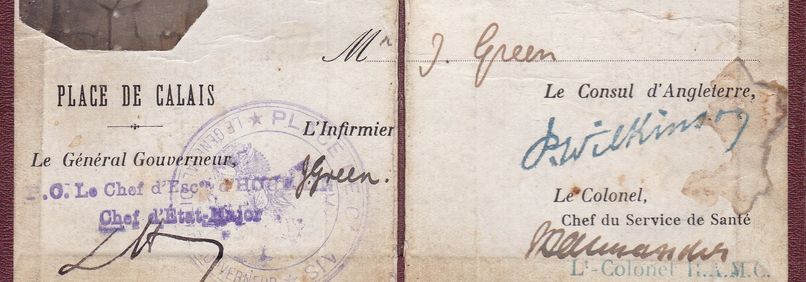 Mr J. Green
PLACE DE CALAIS
Le Général Gouverneur,
P.O. Le Chef d'Escon d'
Chef d'État-Major
L'Infirmier
J Green.
Le Consul d'Angleterre,
P. Wilkinson
Le Colonel,
Chef du Service de Santé
Lt-Colonel R.A.M.C.
PLACE DE CALAIS
GOUVERNEUR